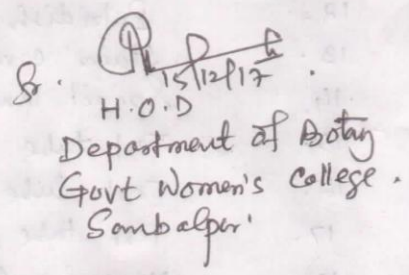 Sr.
15/12/17.
H.O.D
Department of Botany
Govt Women's College.
Sambalpur